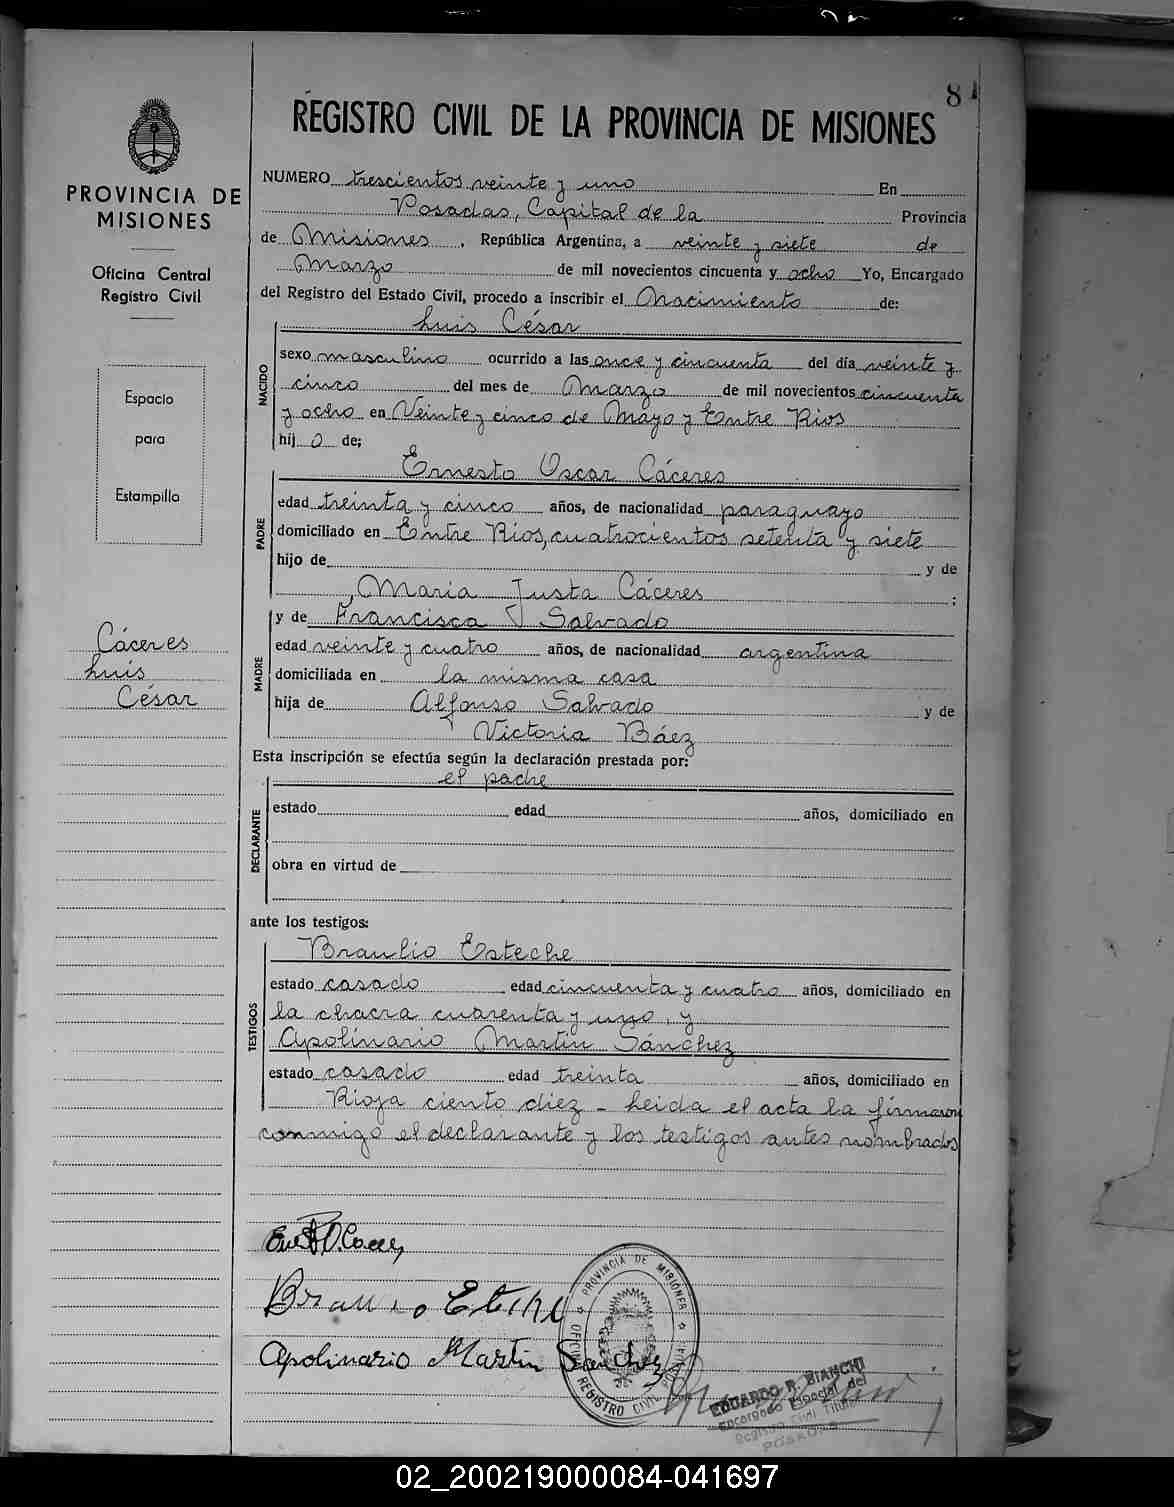 81
REGISTRO CIVIL DE LA PROVINCIA DE MISIONES
PROVINCIA DE
MISIONES
Oficina Central
Registro Civil
Espacio
para
Estampilla
Cáceres
Luis
César
NUMERO trescientos veinte y uno En
Posadas, Capital de la Provincia
de Misiones, República Argentina, a veinte y siete de
Marzo de mil novecientos cincuenta y ocho Yo, Encargado
del Registro del Estado Civil, procedo a inscribir el Nacimiento de:
NACIDO
Luis César
sexo masculino ocurrido a las once y cincuenta del día veinte y
cinco del mes de Marzo de mil novecientos cincuenta
y ocho en Veinte y cinco de Mayo y Entre Rios
hij o de;
PADRE
Ernesto Oscar Cáceres
edad treinta y cinco años, de nacionalidad paraguayo
domiciliado en Entre Rios, cuatrocientos setenta y siete
hijo de y de
Maria Justa Cáceres ;
MADRE
y de Francisca Salvado
edad veinte y cuatro años, de nacionalidad argentina
domiciliada en la misma casa
hija de Alfonso Salvado y de
Victoria Báez
Esta inscripción se efectúa según la declaración prestada por:
DECLARANTE
el padre
estado edad años, domiciliado en
obra en virtud de
ante los testigos:
TESTIGOS
Braulio Esteche
estado casado edad cincuenta y cuatro años, domiciliado en
la chacra cuarenta y uno, y
Apolinario Martin Sánchez
estado casado edad treinta años, domiciliado en
Rioja ciento diez - Leida el acta la firmaron
conmigo el declarante y los testigos antes nombrados
Apolinario Martin Sanchez
PROVINCIA DE MISIONES
REGISTRO CIVIL
EDUARDO R. BIANCHI
Encargado Especial del
Registro Civil Titular
POSADAS
02_200219000084-041697